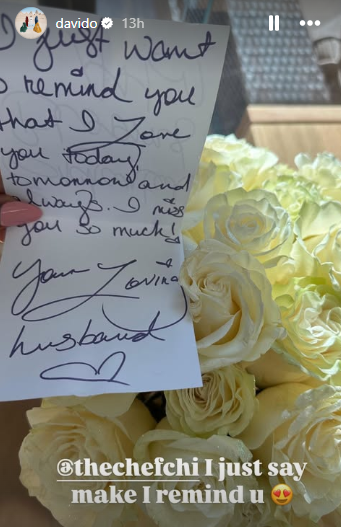 davido 13h
I just want
to remind you
that I Love
you today
tomorrow and
always. I miss
you so much!
Your Loving
husband
@thechefchi I just say
make I remind u 😍